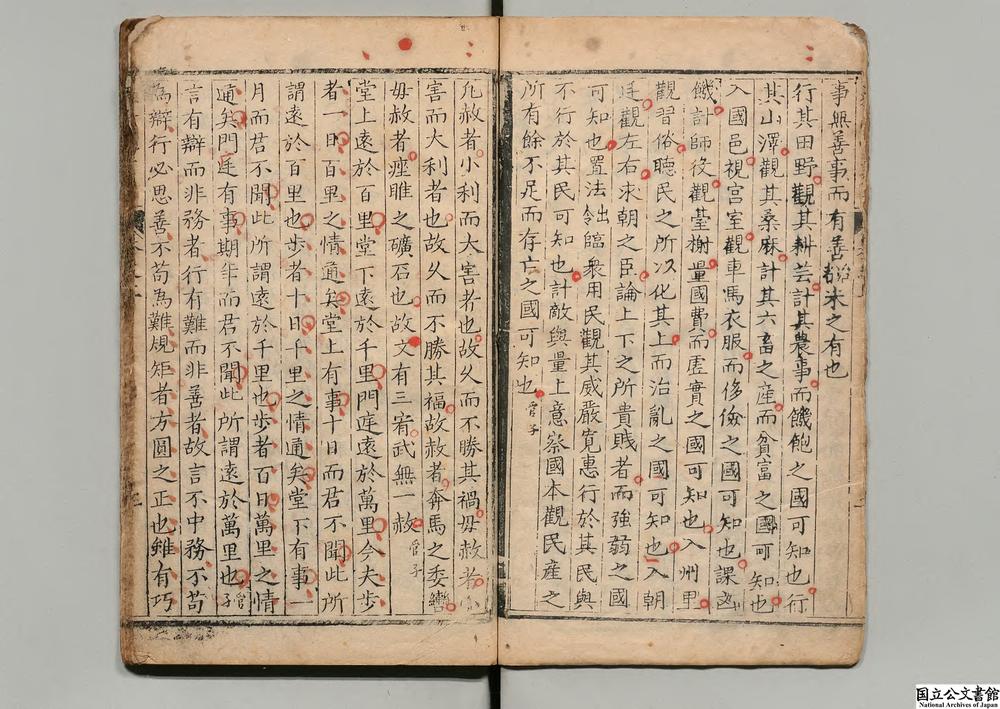 事無善事而有善治未之有也
行其田野觀其耕芸計其農事而饑飽之國可知也行
其山澤觀其桑麻計其六畜之産而貧富之國可知也
入國邑視宫室觀車馬衣服而侈儉之國可知也課凶
饑計師役觀臺榭量國費而虚實之國可知也入州里
觀習俗聽民之所以化其上而治亂之國可知也入朝
廷觀左右求朝之臣論上下之所貴賤者而強弱之國
可知也置法出令臨衆用民觀其威嚴寛惠行於其民與
不行於其民可知也計敵與量上意察國本觀民産之
所有餘不足而存亡之國可知也 管子
凡赦者小利而大害者也故久而不勝其禍毋赦者小
害而大利者也故久而不勝其福故赦者奔馬之委轡
毋赦者痤睢之礦石也故文有三宥武無一赦 管子
堂上遠於百里堂下遠於千里門庭遠於萬里今夫步
者一日百里之情通矣堂上有事十日而君不聞此所
謂遠於百里也步者十日千里之情通矣堂下有事一
月而君不聞此所謂遠於千里也步者百日萬里之情
通矣門庭有事期年而君不聞此所謂遠於萬里也 管子
言有辯而非務者行有難而非善者故言不中務不苟
為辯行必思善不苟為難規矩者方圓之正也雖有巧
国立公文書館
National Archives of Japan